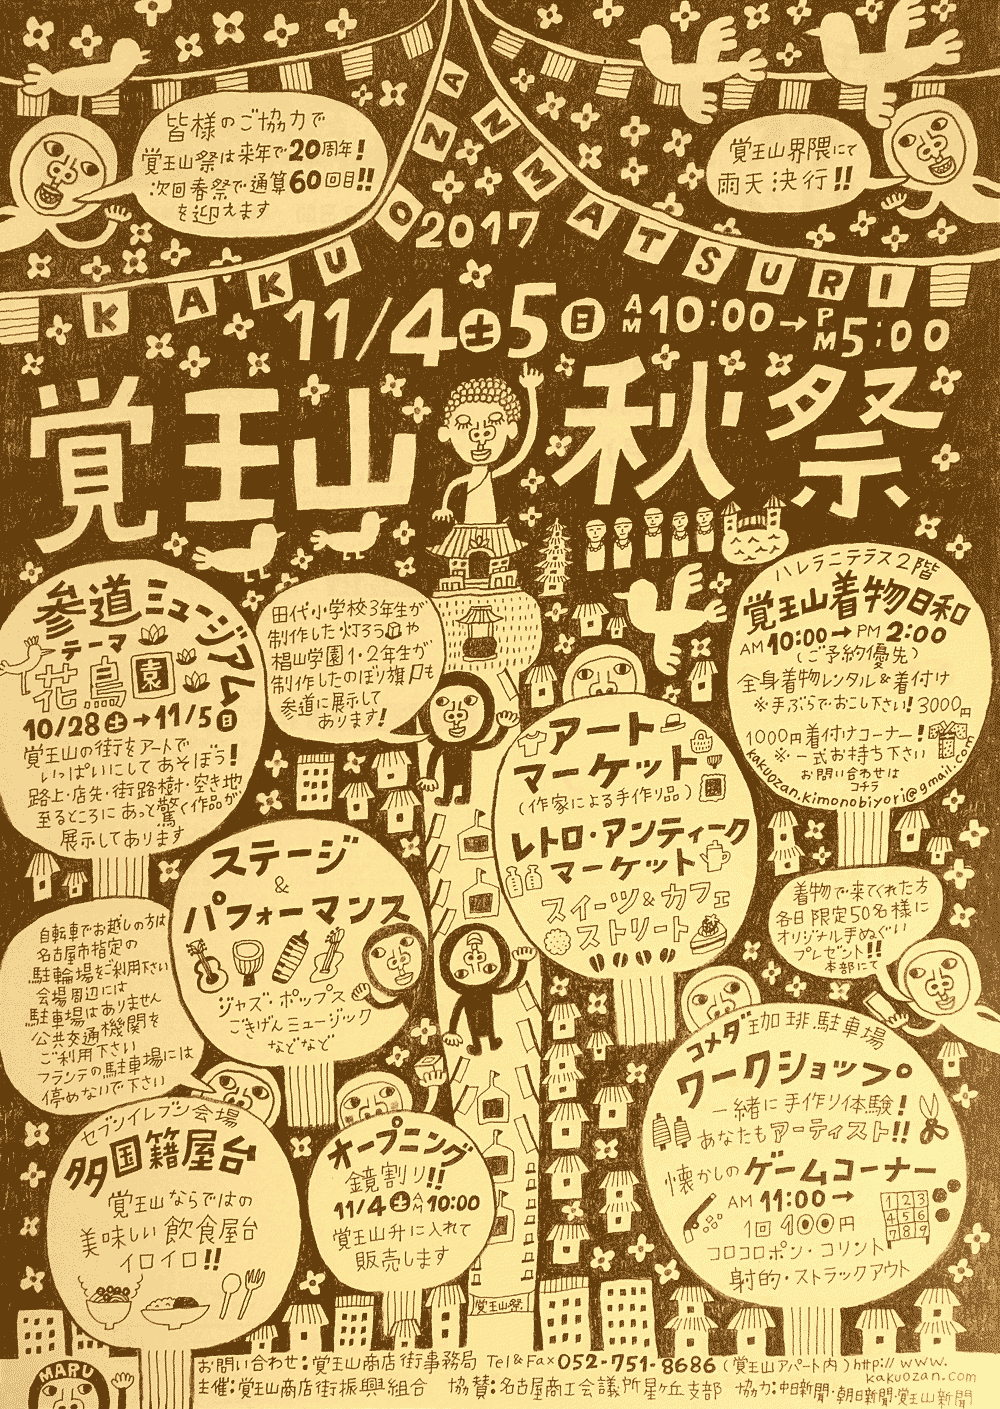 皆様のご協力で
覚王山祭は来年で20周年!
次回春祭で通算60回目!!
を迎えます
覚王山界隈にて
雨天決行!!
KAKUOZAN MATSURI
2017
11/4土5日 AM10:00→PM5:00
覚王山 秋祭
参道ミュージアム
テーマ
花鳥園
10/28土→11/5日
覚王山の街をアートで
いっぱいにしてあそぼう!
路上・店先・街路樹・空き地
至るところにあっと驚く作品が
展示してあります
田代小学校3年生が
制作した灯ろうや
椙山学園1・2年生が
制作したのぼり旗も
参道に展示して
あります!
ハレラニテラス2階
覚王山着物日和
AM10:00→PM2:00
(ご予約優先)
全身着物レンタル&着付け
※手ぶらでおこし下さい!3000円
1000円着付けコーナー!
※一式お持ち下さい
お問い合わせは
コチラ
kakuozan.kimonobiyori@gmail.com
アート
マーケット
(作家による手作り品)
レトロ・アンティーク
マーケット
スイーツ&カフェ
ストリート
ステージ
&
パフォーマンス
ジャズ・ポップス
ごきげんミュージック
などなど
着物で来てくれた方
各日限定50名様に
オリジナル手ぬぐい
プレゼント!!
本部にて
自転車でお越しの方は
名古屋市指定の
駐輪場をご利用下さい
会場周辺には
駐車場はありません
公共交通機関を
ご利用下さい
フランテの駐車場には
停めないで下さい
コメダ珈琲駐車場
ワークショップ
一緒に手作り体験!
あなたもアーティスト!!
懐かしのゲームコーナー
AM 11:00→
1回100円
コロコロポン・コリント
射的・ストラックアウト
1 2 3
4 5 6
7 8 9
セブンイレブン会場
多国籍屋台
覚王山ならではの
美味しい飲食屋台
イロイロ!!
オープニング
鏡割り!!
11/4土AM10:00
覚王山升に入れて
販売します
覚王山祭
MARU
お問い合わせ:覚王山商店街事務局 Tel&Fax052-751-8686(覚王山アパート内)http://www.
kakuozan.com
主催:覚王山商店街振興組合 協賛:名古屋商工会議所星ヶ丘支部 協力:中日新聞・朝日新聞・覚王山新聞